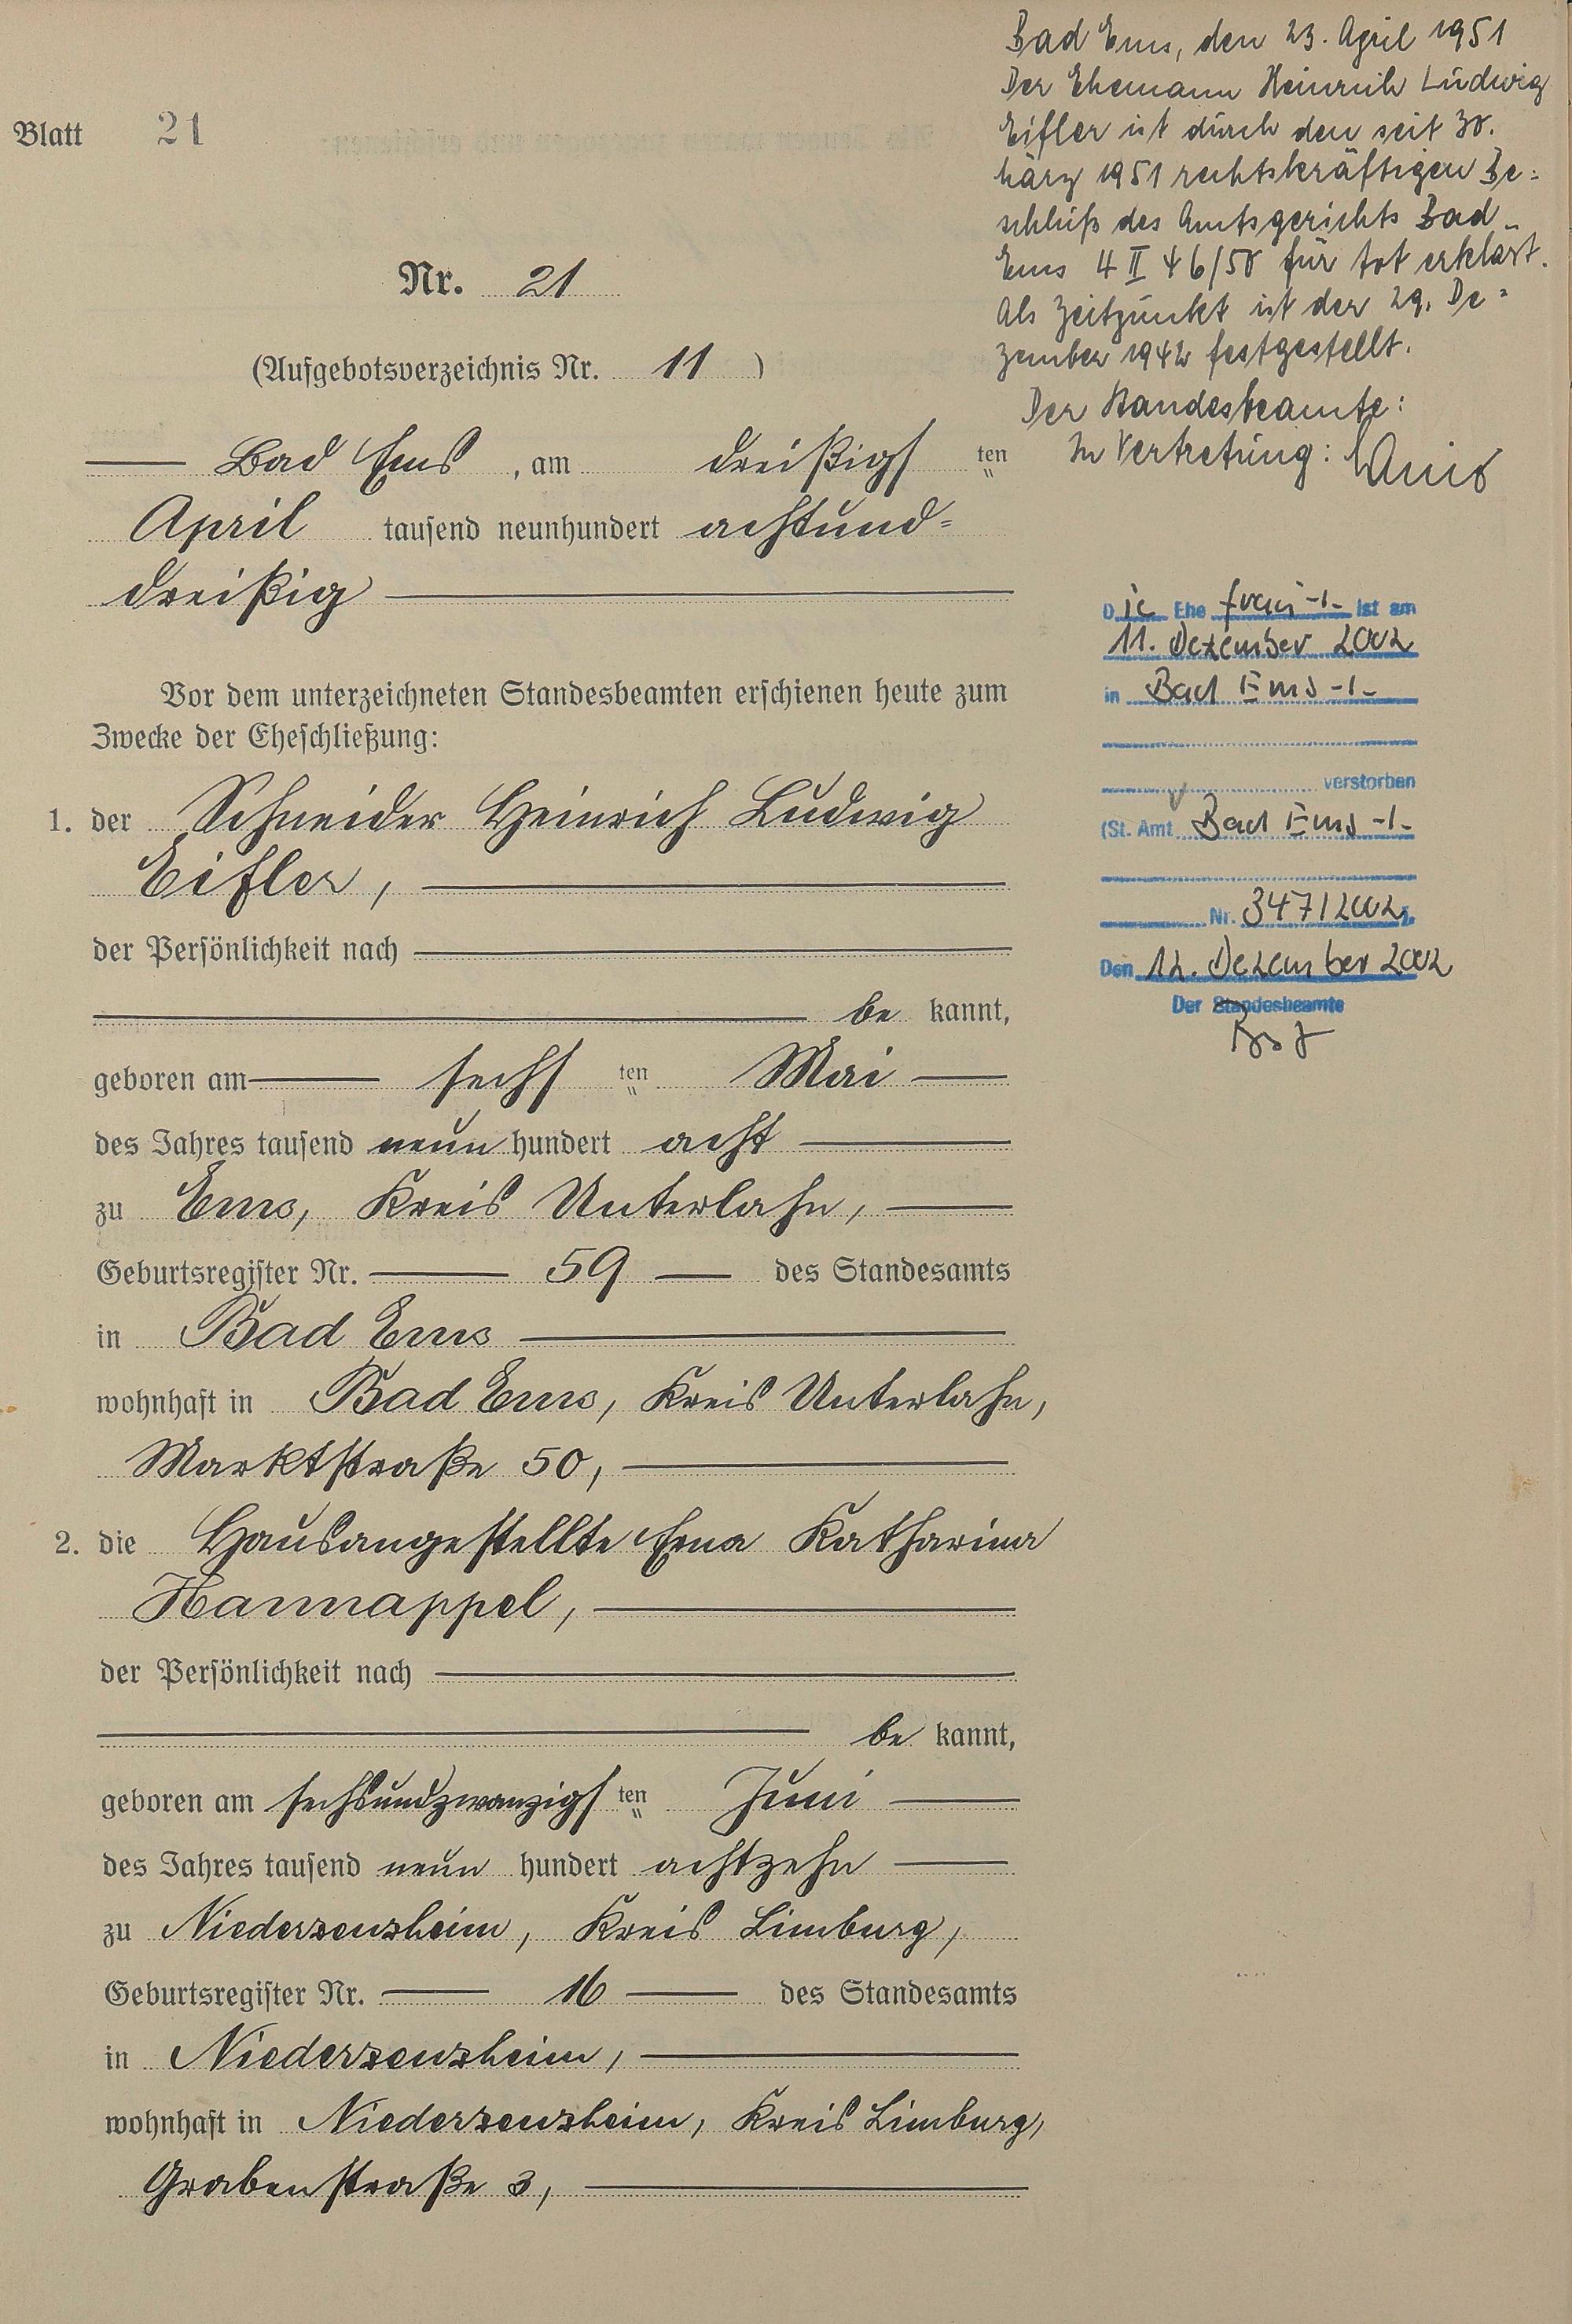 Blatt 21
Nr. 21
(Aufgebotsverzeichnis Nr. 11 )
Bad Ems, am dreißigs ten
April tausend neunhundert achtund=
dreißig
Vor dem unterzeichneten Standesbeamten erschienen heute zum
Zwecke der Eheschließung:
1. der Schneider Heinrich Ludwig
Eifler,
der Persönlichkeit nach
be kannt,
geboren am sechs ten Mai
des Jahres tausend neun hundert acht
zu Ems, Kreis Unterlahn,
Geburtsregister Nr. 59 des Standesamts
in Bad Ems
wohnhaft in Bad Ems, Kreis Unterlahn,
Marktstraße 50,
2. die Hausangestellte Erna Katharina
Hannappel,
der Persönlichkeit nach
be kannt,
geboren am sechsundzwanzigs ten Juni
des Jahres tausend neun hundert achtzehn
zu Niederzeuzheim, Kreis Limburg,
Geburtsregister Nr. 16 des Standesamts
in Niederzeuzheim,
wohnhaft in Niederzeuzheim, Kreis Limburg,
Grabenstraße 3,
Bad Ems, den 23. April 1951
Der Ehemann Heinrich Ludwig
Eifler ist durch den seit 30.
März 1951 rechtskräftigen Be=
schluß des Amtsgerichts Bad
Ems 4 II 46/50 für tot erklärt.
Als Zeitpunkt ist der 29. De=
zember 1942 festgestellt.
Der Standesbeamte:
In Vertretung:
Die Ehe frau -/- ist am
11. Dezember 2002
in Bad Ems -/-
verstorben
(St. Amt Bad Ems -/-
Nr. 347/2002).
Den 12. Dezember 2002
Der Standesbeamte